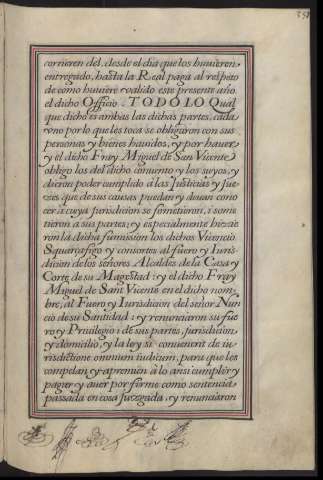 corrieren del, desde el dia que los huuieren
entregado, hasta la Real paga al respeto
de como huuiere valido este presente año
el dicho Officio. TODO LO Qual
que dicho es ambas las dichas partes, cada
vno por lo que les toca se obligaron con sus
personas y bienes hauidos, y por hauer,
y el dicho Fray Miguel de San Vicente
obligo los del dicho conuento y los suyos, y
dieron poder cumplido á las Justicias y Jue-
zes que de sus causas puedan y deuan cono
cer á cuya jurisdicion se sometieron, i some
tieron a sus partes; y especialmente hizie
ron la dicha sumission los dichos Vicencio
Squarçafigo y consortes al fuero y Juris-
dicion de los señores Alcaldes de la Casa y
Corte de su Magestad: y el dicho Fray
Miguel de Sant Vicente en el dicho nom-
bre, al Fuero y Iurisdicion del señor Nun
cio de su Santidad: y renunciaron su fue
ro y Priuilegio i de sus partes, jurisdicion
y domicilio, y la ley si conuenerit de iu-
risdictione omnium iudicum, para que les
compelan y apremien á lo ansi cumplir y
pagar y auer por firme como sentencia
passada en cosa juzgada, y renunciaron